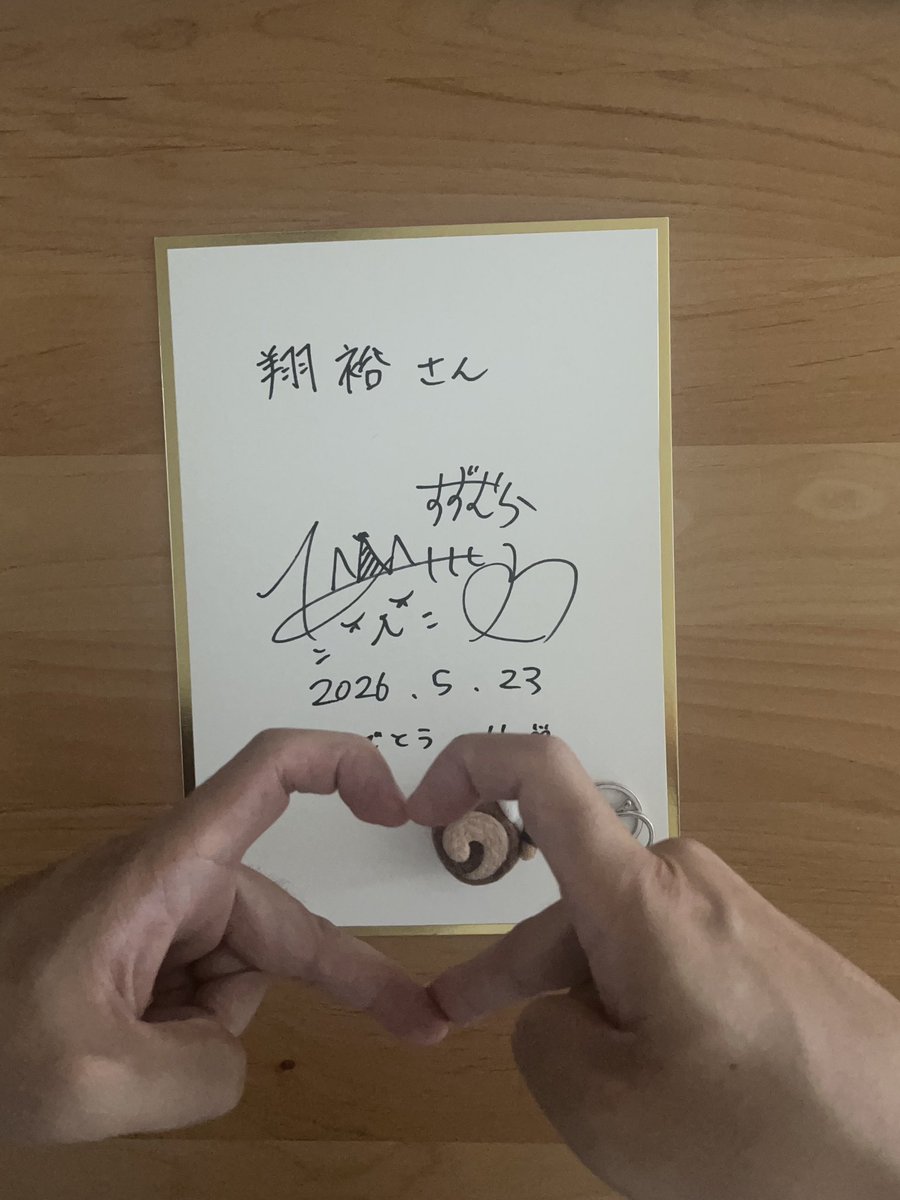 翔裕さん
すずむら
2026.5.23
でとう